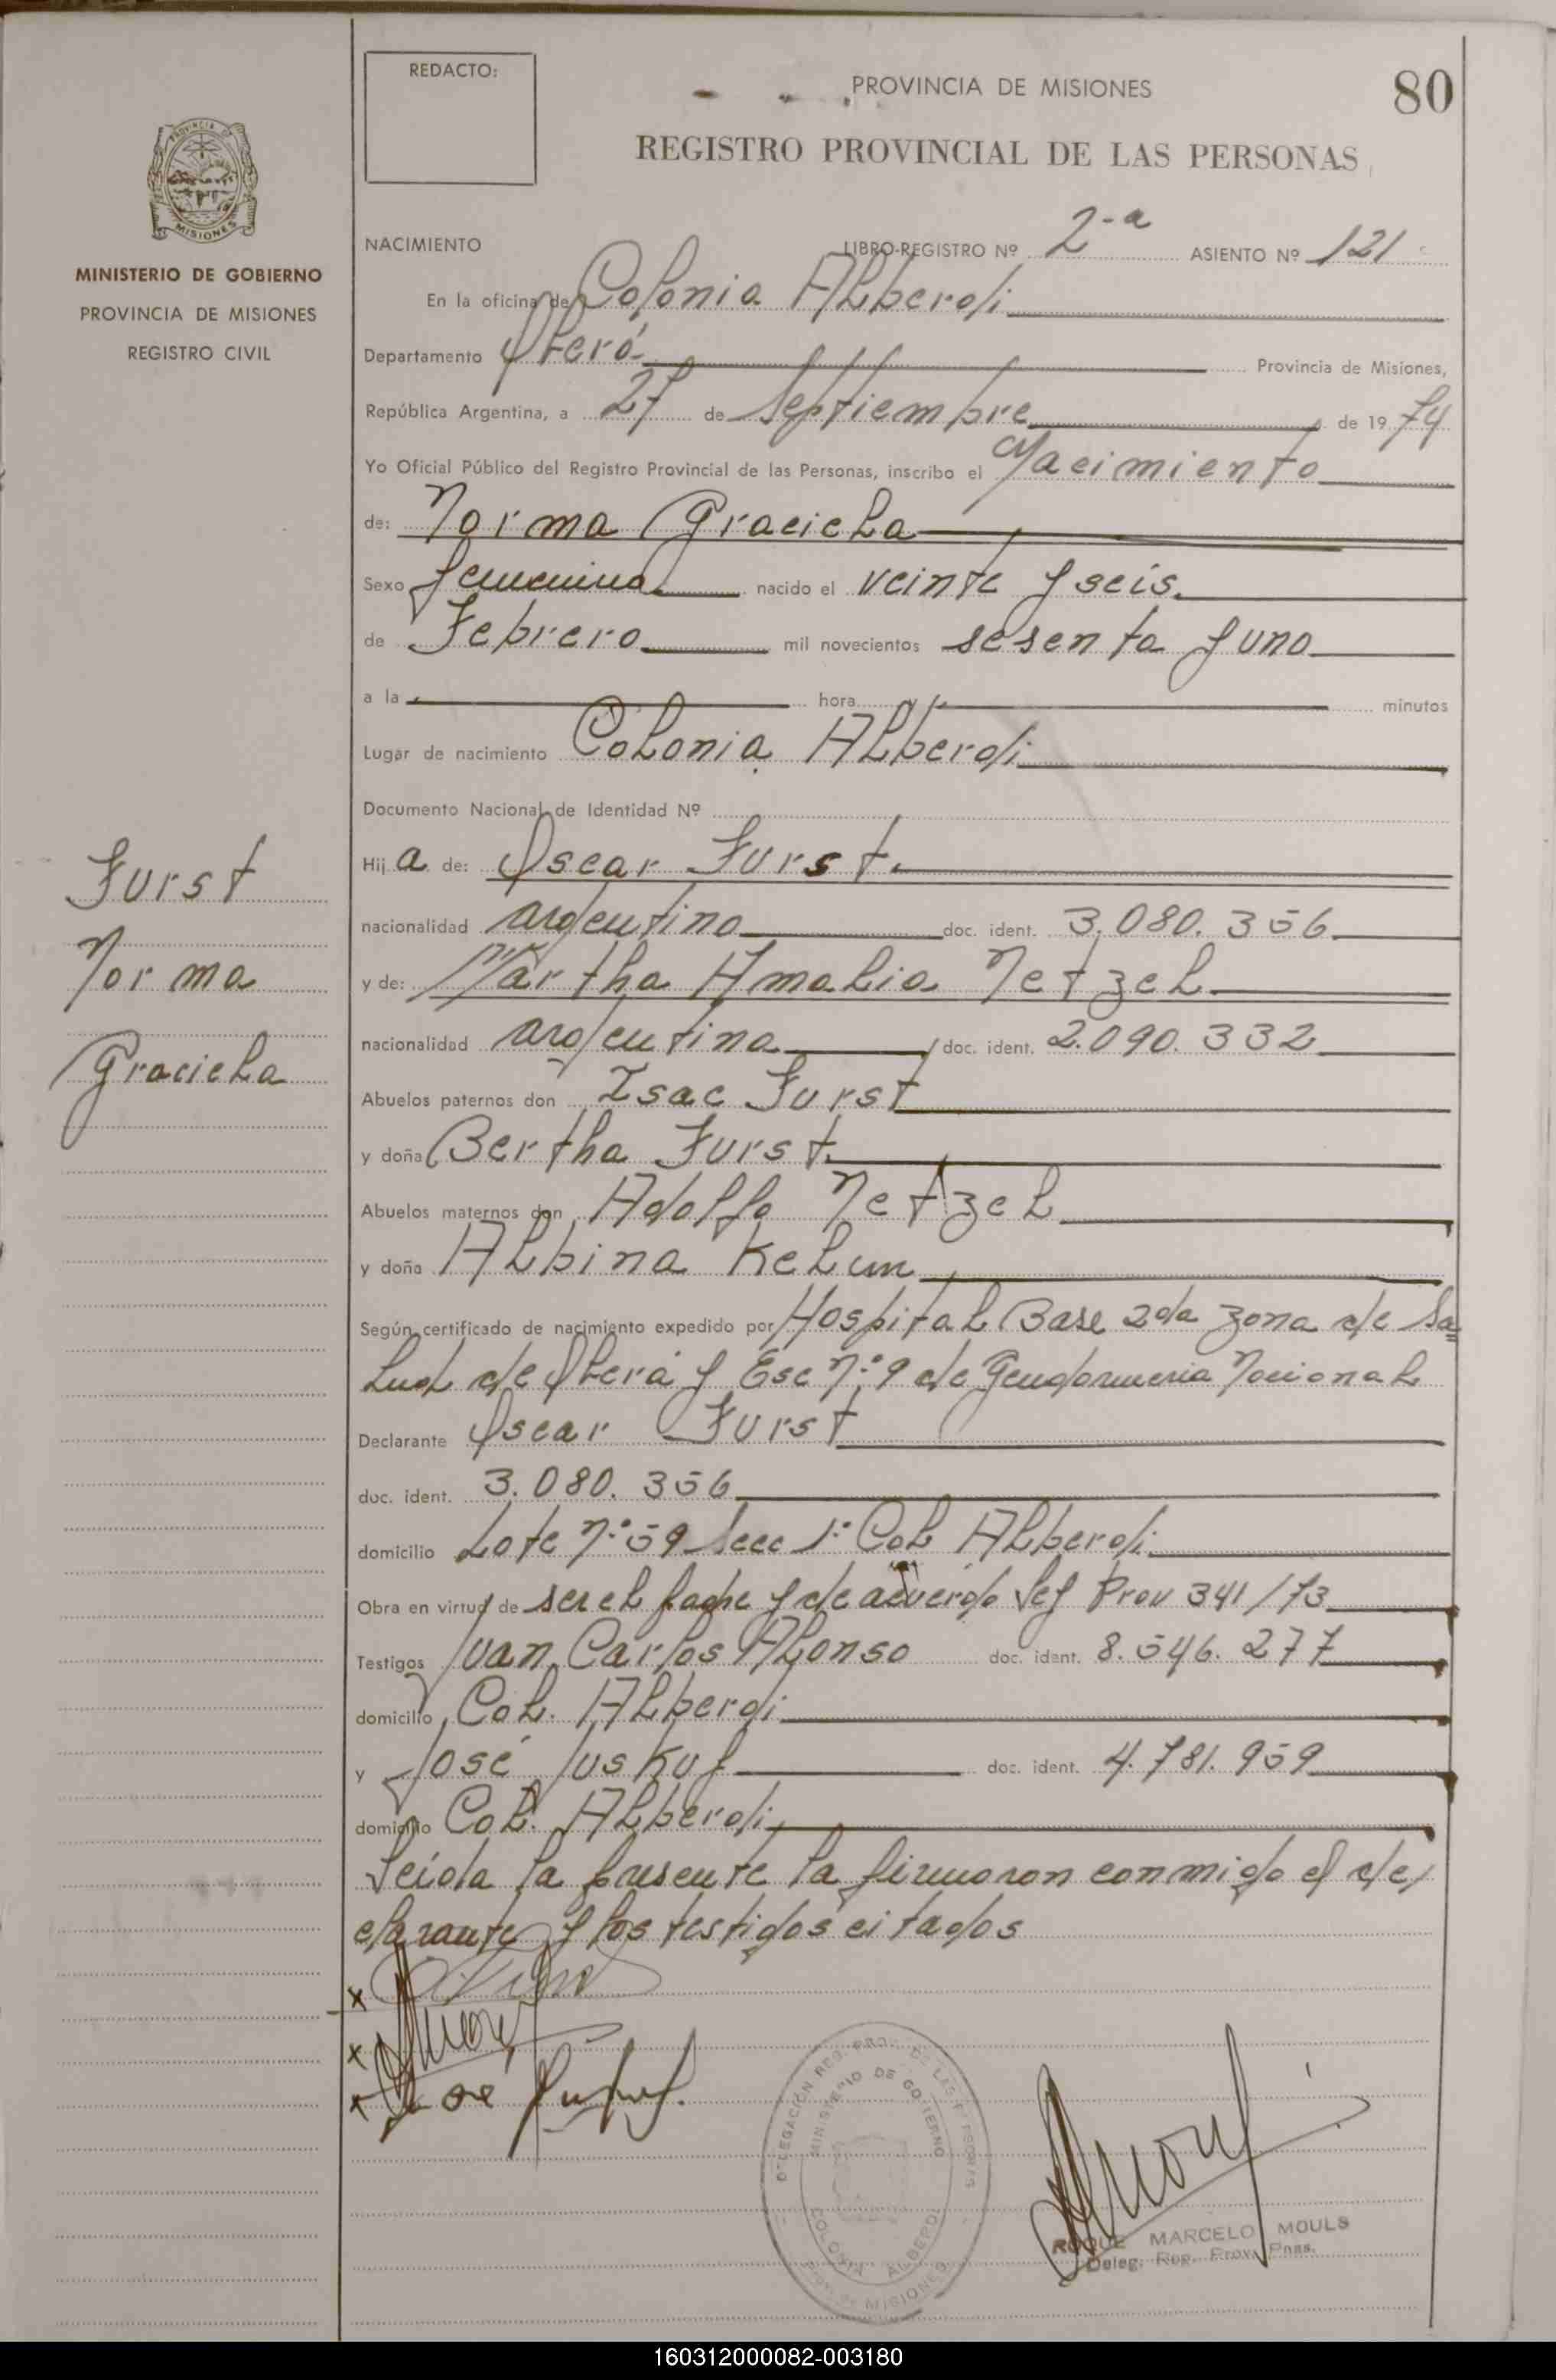 REDACTO:
PROVINCIA DE MISIONES
80
REGISTRO PROVINCIAL DE LAS PERSONAS
PROVINCIA DE
MISIONES
MINISTERIO DE GOBIERNO
PROVINCIA DE MISIONES
REGISTRO CIVIL
NACIMIENTO LIBRO-REGISTRO Nº 2-a ASIENTO Nº 121
En la oficina de Colonia Alberdi
Departamento Oberá Provincia de Misiones,
República Argentina, a 27 de Septiembre de 1974
Yo Oficial Público del Registro Provincial de las Personas, inscribo el Nacimiento
de: Norma Graciela
Sexo femenino nacido el veinte y seis
de Febrero mil novecientos sesenta y uno
a la hora y minutos
Lugar de nacimiento Colonia Alberdi
Documento Nacional de Identidad Nº
Hija de: Oscar Furst
nacionalidad argentino doc. ident. 3.080.356
y de: Martha Amalia Netzel
nacionalidad argentina doc. ident. 2.090.332
Abuelos paternos don Isac Furst
y doña Bertha Furst
Abuelos maternos don Adolfo Netzel
y doña Albina Kelum
Según certificado de nacimiento expedido por Hospital Base 2da zona de Sa=
lud de Oberá y Esc Nº 9 de Gendarmeria Nacional
Declarante Oscar Furst
doc. ident. 3.080.356
domicilio Lote Nº 59 Secc 1ª Col Alberdi
Obra en virtud de ser el padre y de acuerdo Ley Prov 341/73
Testigos Juan Carlos Alonso doc. ident. 8.546.277
domicilio Col. Alberdi
y José Juskuf doc. ident. 4.781.959
domicilio Col. Alberdi
Leida la presente la firmaron conmigo el de,
clarante y los testigos citados
Furst
Norma
Graciela
x
x
x José
DELEGACIÓN REG. PROV. DE LAS PERSONAS
MINISTERIO DE GOBIERNO
COLONIA ALBERDI
MISIONES
ROQUE MARCELO MOULS
Deleg. Reg. Prov. Pnas.
160312000082-003180